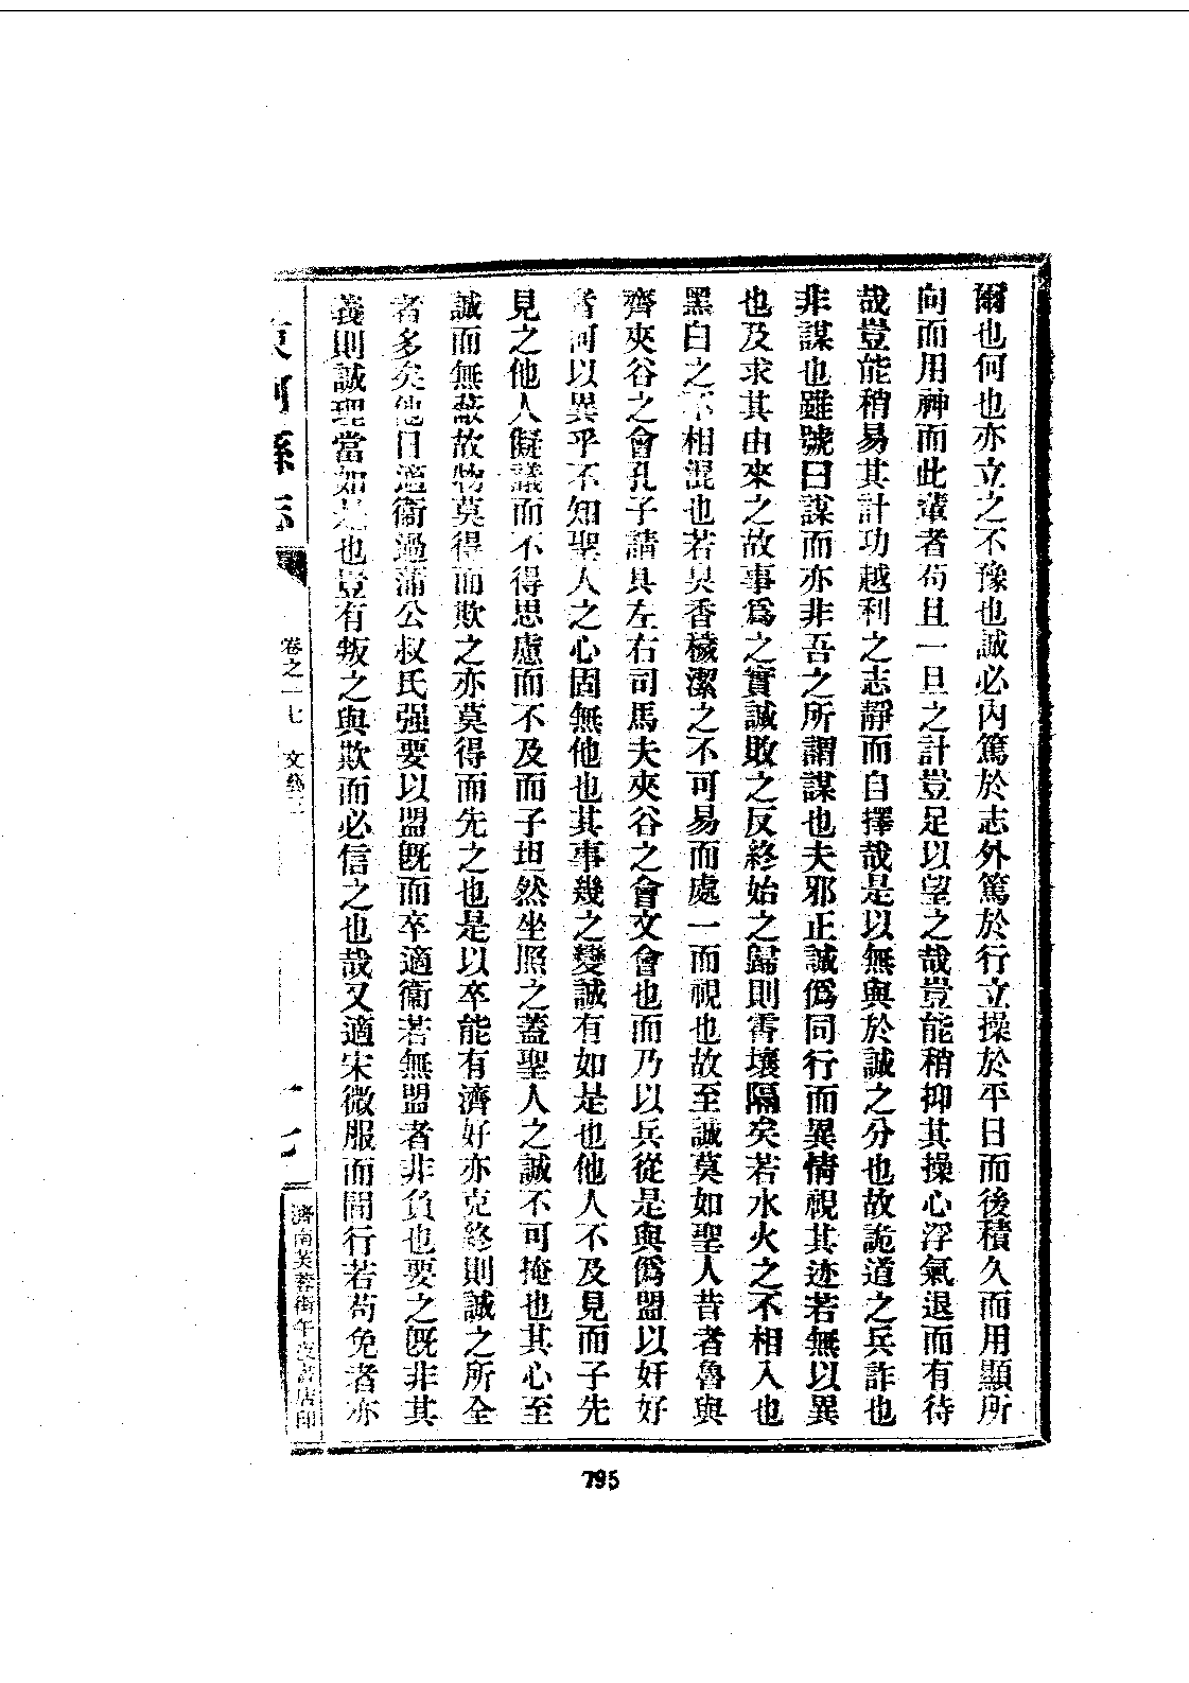 爾也何也亦立之不豫也誠必內篤於志外篤於行立操於平日而後積久而用顯所
向而用神而此輩者苟且一旦之計豈足以望之哉豈能稍抑其操心浮氣退而有待
哉豈能稍易其計功越利之志靜而自擇哉是以無與於誠之分也故詭道之兵詐也
非謀也雖號曰謀而亦非吾之所謂謀也夫邪正誠僞同行而異情視其迹若無以異
也及求其由來之故事爲之實誠敗之反終始之歸則霄壤隔矣若水火之不相入也
黑白之不相混也若臭香穢潔之不可易而處一而視也故至誠莫如聖人昔者魯與
齊夾谷之會孔子請具左右司馬夫夾谷之會文會也而乃以兵從是與僞盟以奸好
者何以異乎不知聖人之心固無他也其事幾之變誠有如是也他人不及見而子先
見之他人儗議而不得思慮而不及而子坦然坐照之蓋聖人之誠不可掩也其心至
誠而無蔽故物莫得而欺之亦莫得而先之也是以卒能有濟好亦克終則誠之所全
者多矣他日適衞過蒲公叔氏强要以盟旣而卒適衞若無盟者非負也要之旣非其
義則誠理當如是也豈有叛之與欺而必信之也哉又適宋微服而間行若苟免者亦
東阿縣志
卷之十七 文藝三
十七
濟南芙蓉街午夜書店印
795